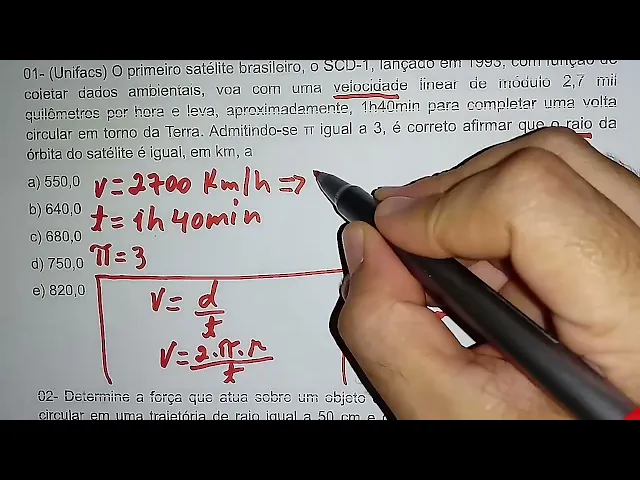 01- (Unifacs) O primeiro satélite brasileiro, o SCD-1, lançado em 1993, com função de
coletar dados ambientais, voa com uma velocidade linear de módulo 2,7 mil
quilômetros por hora e leva, aproximadamente, 1h40min para completar uma volta
circular em torno da Terra. Admitindo-se π igual a 3, é correto afirmar que o raio da
órbita do satélite é igual, em km, a
a) 550,0 v = 2700 Km/h ⇒
b) 640,0 t = 1h 40min
c) 680,0
d) 750,0 π = 3
e) 820,0
v = d/t
v = 2.π.r/t
02- Determine a força que atua sobre um objeto
circular em uma trajetória de raio igual a 50 cm e